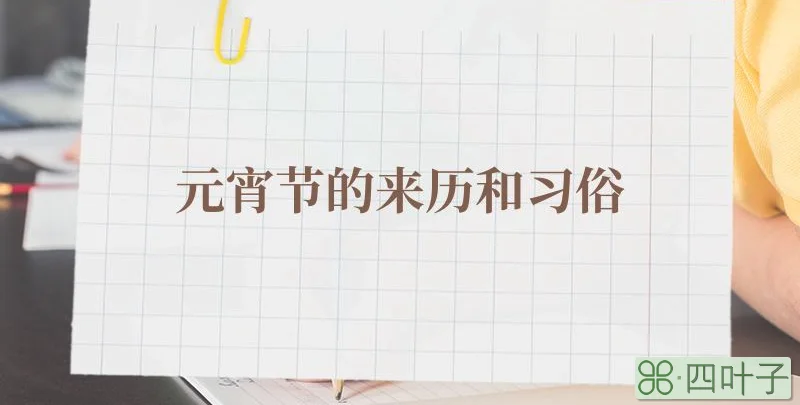 元宵节的来历和习俗
四叶子